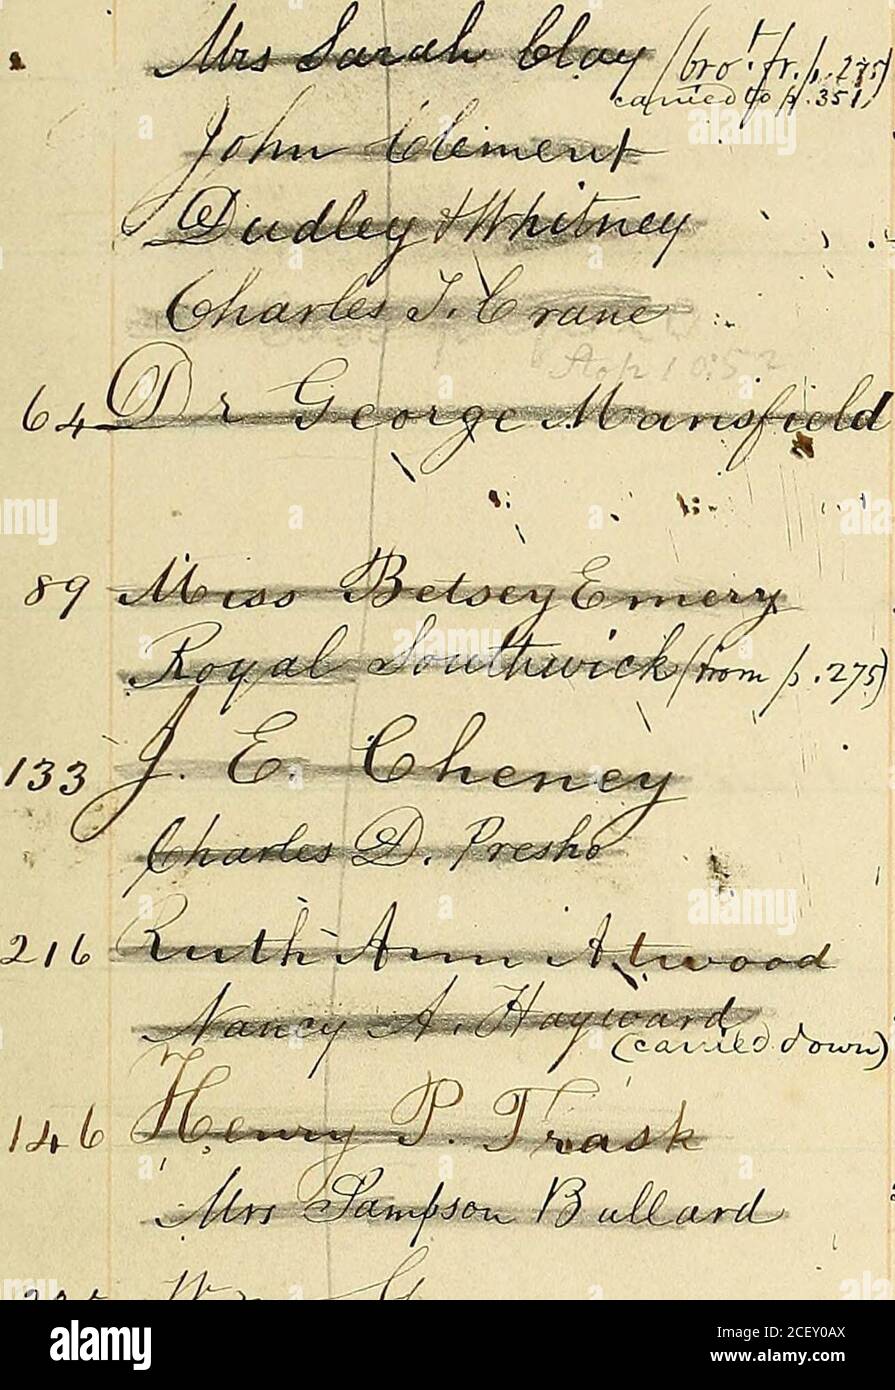 Mrs Sarah Clay (bro't fr. p. 275)
carried to p. 351)
John Clement
Dudley & Whitney
Charles T. Crane
64 Dr George Mansfield
89 Miss Betsey Emery
Royal Southwick (from p. 275)
133 J. E. Cheney
Charles D. Presho
216 Ruth Ann Atwood
Nancy A. Hayward
(carried down)
146 Henry P. Trask
Mrs Sampson Bullard
alamy
Image ID: 2CEY0AX
www.alamy.com